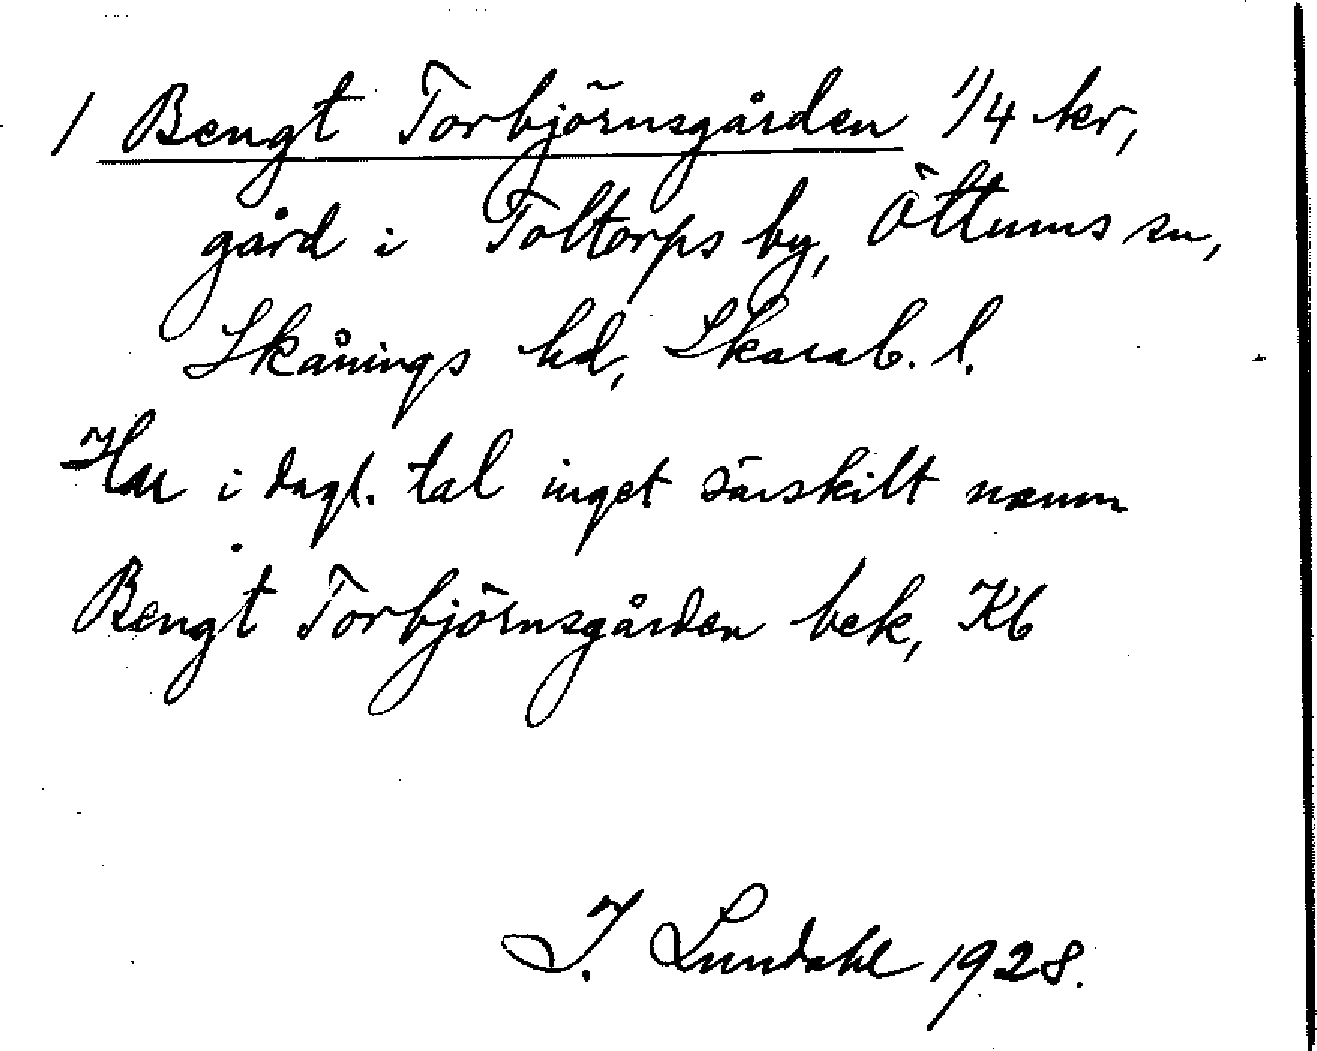 / Bengt Torbjörnsgården 1/4 kr,
gård i Toltorps by, Öttums sn,
Skånings hd, Skarab. l.
Har i dagl. tal inget särskilt namn
Bengt Torbjörnsgården bek, Kb
I. Lundahl 1928.